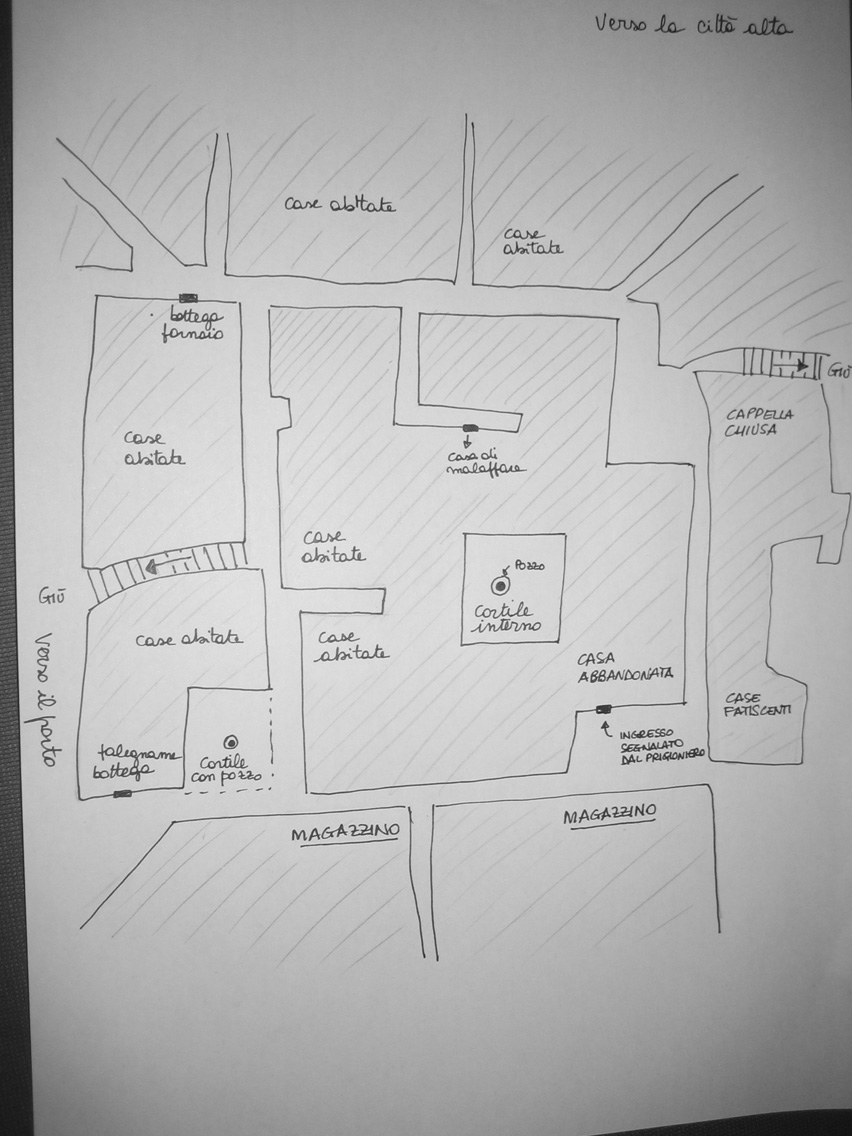 Verso la città alta
case abitate
case
abitate
bottega
fornaio
GIÙ
CAPPELLA
CHIUSA
case
abitate
casa di
malaffare
case
abitate
POZZO
cortile
interno
GIÙ
case abitate
case
abitate
verso il porto
CASA
ABBANDONATA
CASE
FATISCENTI
falegname
bottega
cortile
con pozzo
INGRESSO
SEGNALATO
DAL PRIGIONIERO
MAGAZZINO
MAGAZZINO